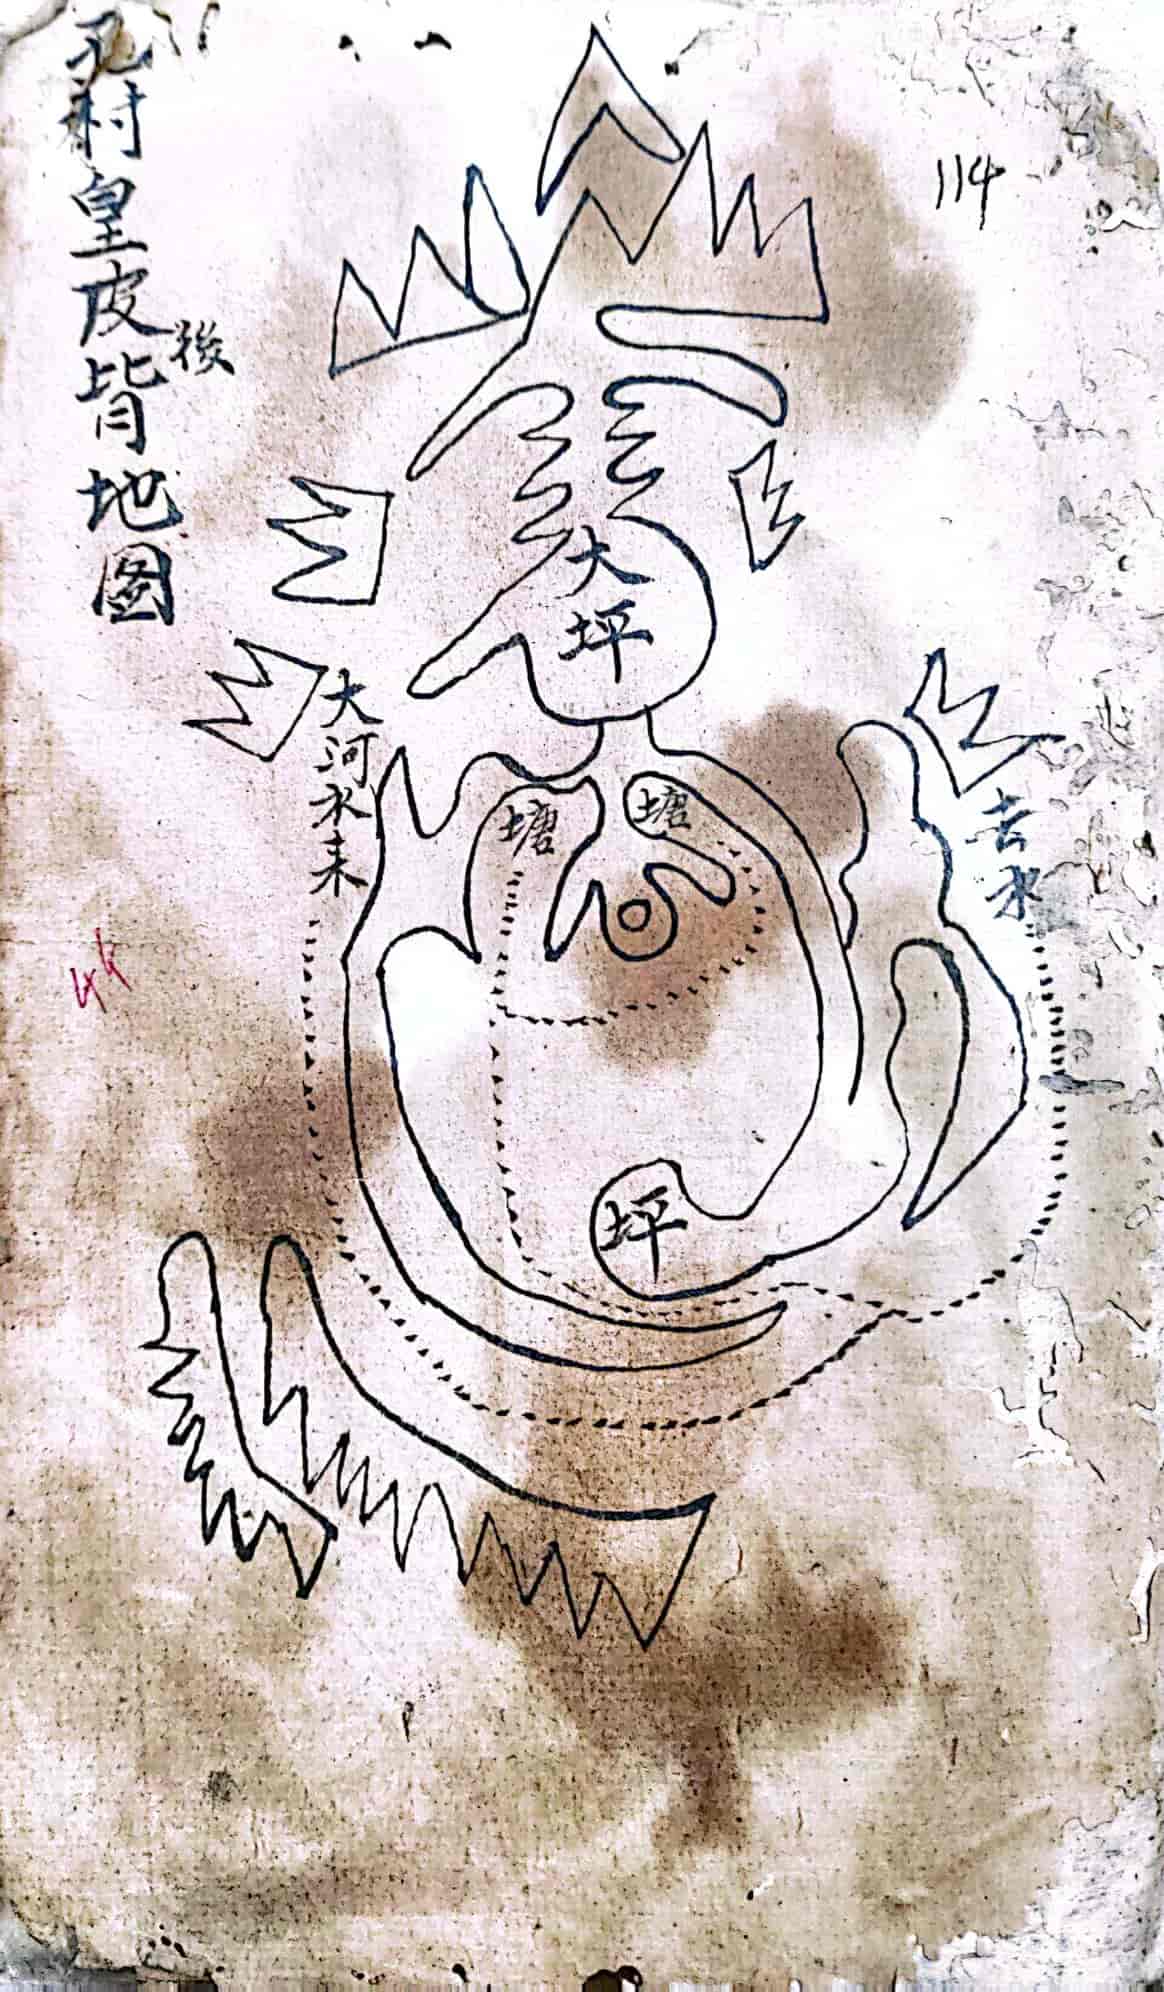 孔村皇皮背地圖
後
114
大坪
大河水来
塘
塘
去水
44
坪